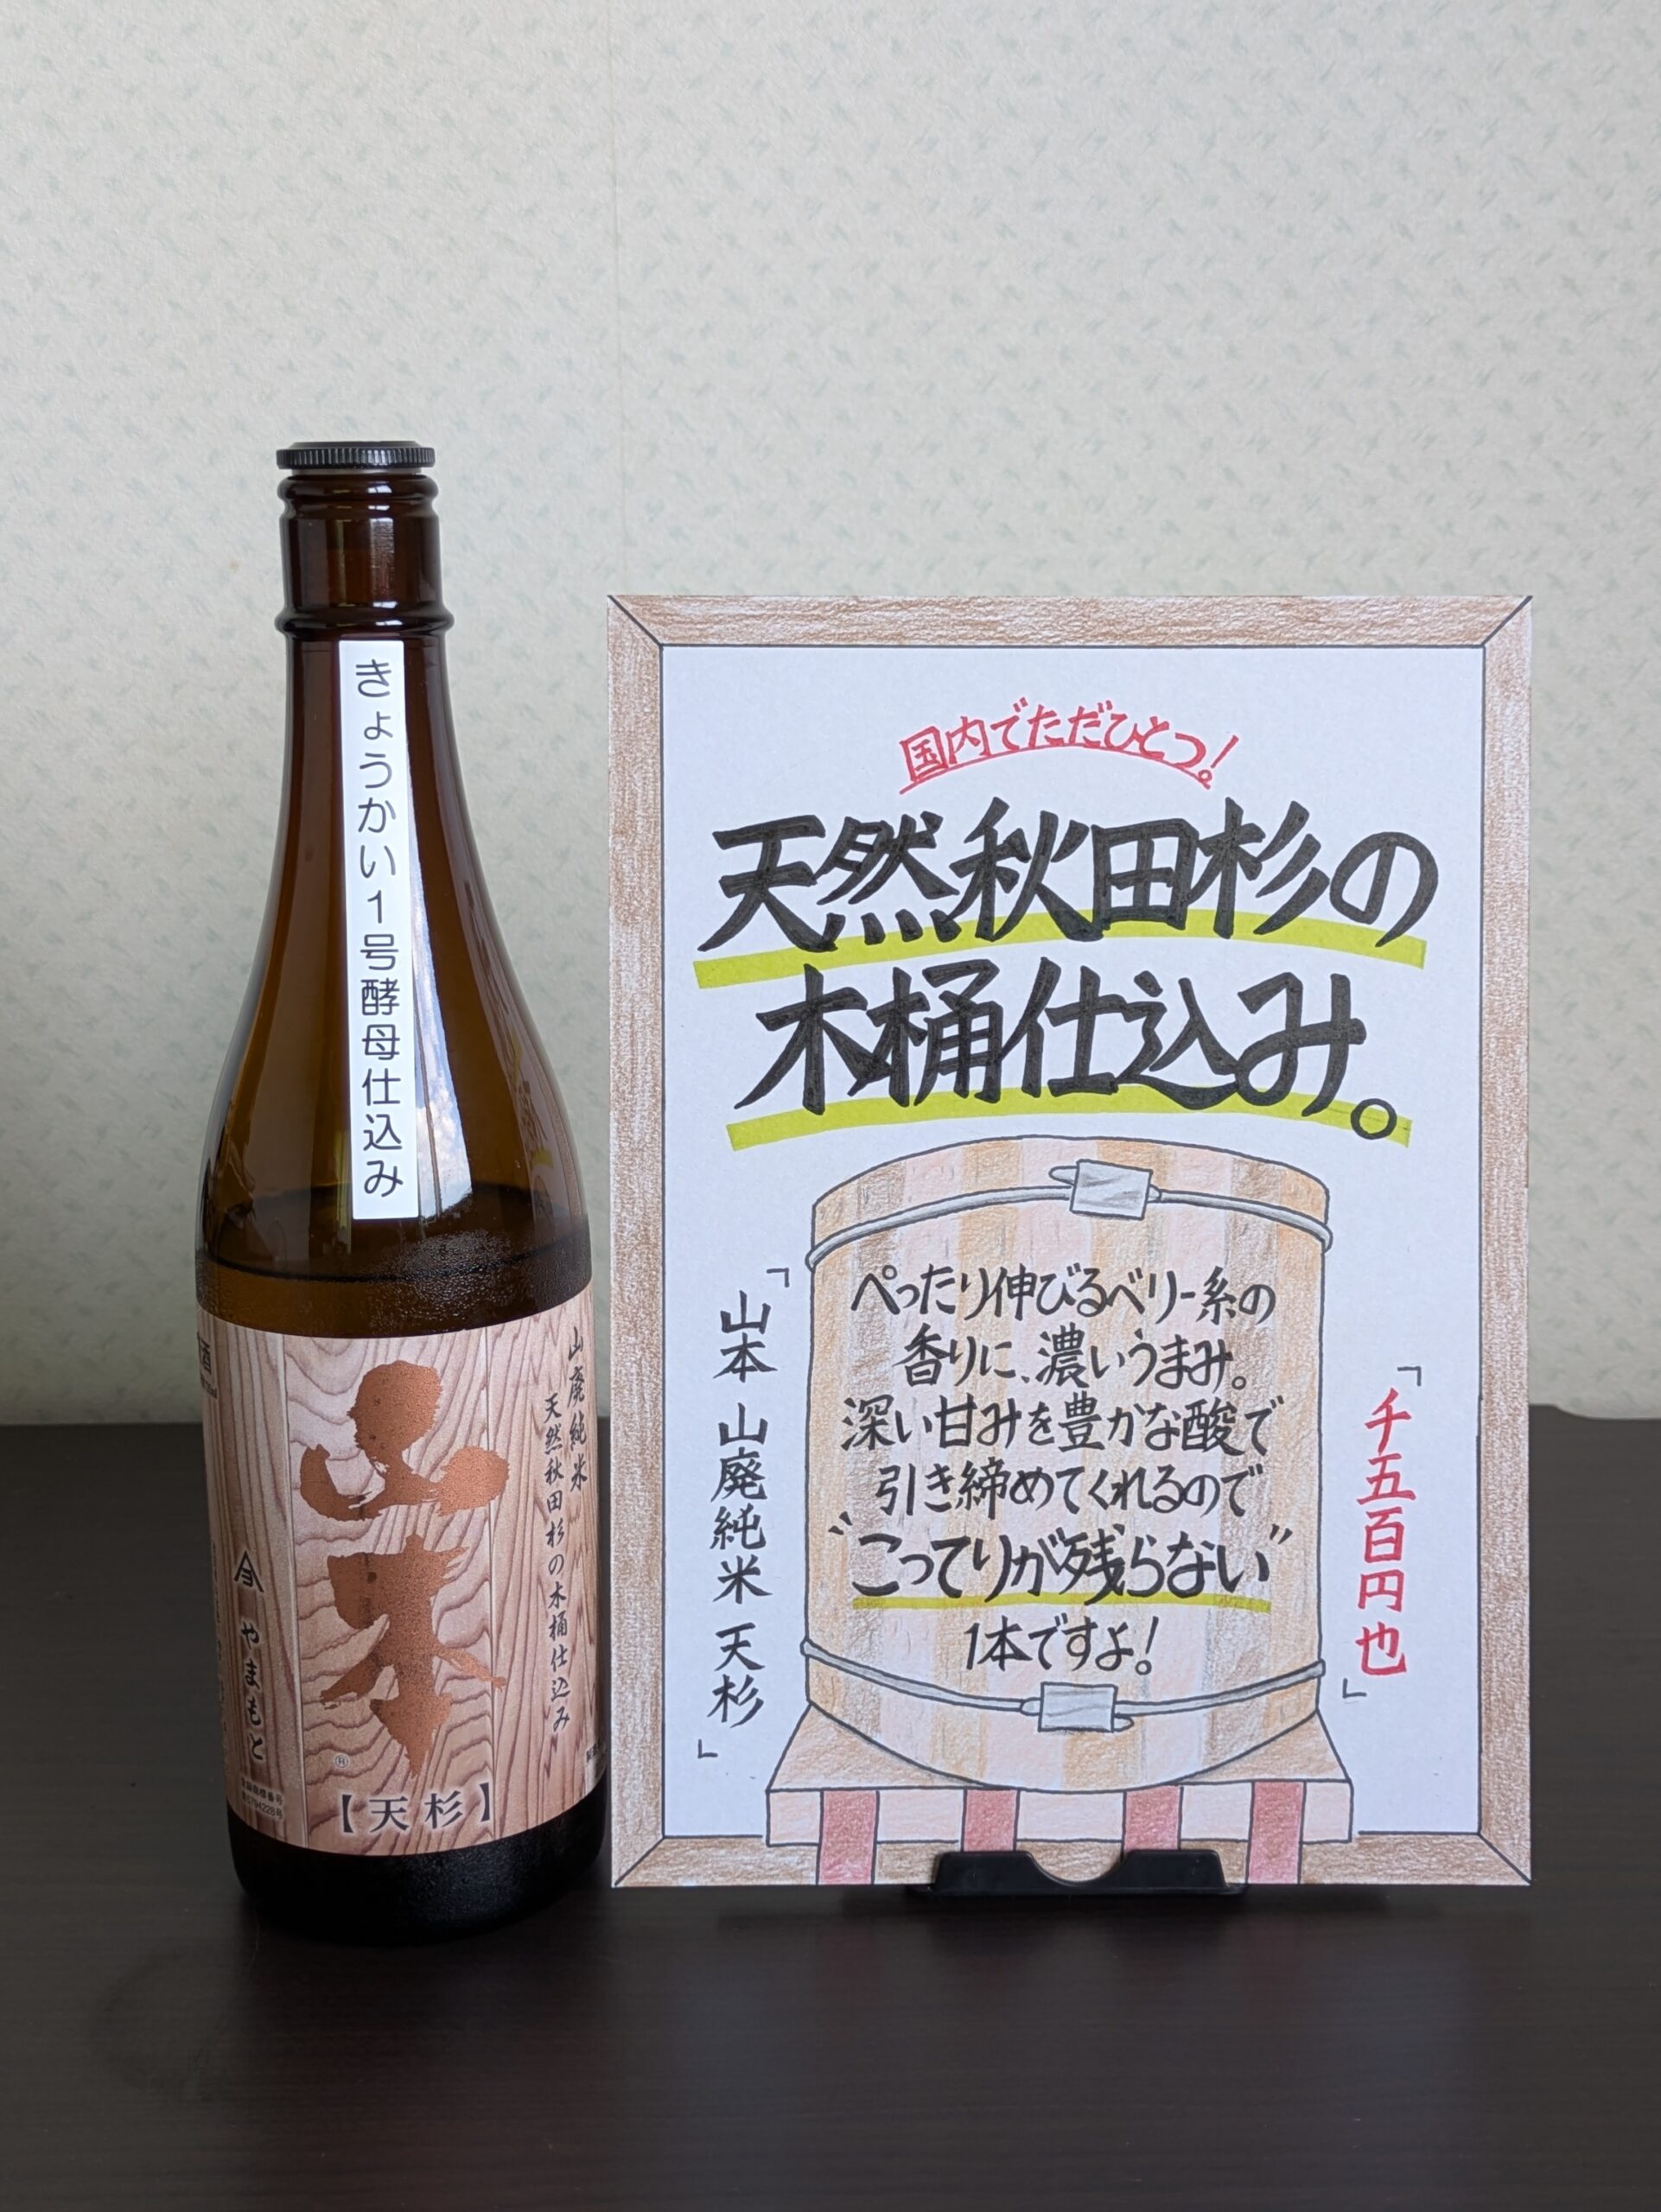 きょうかい1号酵母仕込み
山廃純米
天然秋田杉の木桶仕込み
山本
®
やまもと
【天杉】
国内でただひとつ!
天然秋田杉の
木桶仕込み。
ぺったり伸びるベリー系の
香りに、濃いうまみ。
深い甘みを豊かな酸で
引き締めてくれるので
“こってりが残らない”
1本ですよ!
「山本 山廃純米 天杉」
「千五百円也」